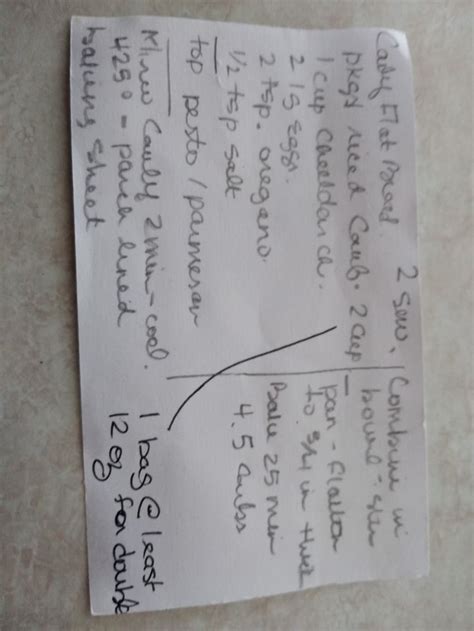 Cauly Flat Bread. 2 serv.
pkgs riced Caul. 2 cup
1 cup cheddar ch.
2 lg eggs.
2 tsp. oregano.
1/2 tsp salt
top pesto / parmesan
Micro Cauly 2 min - cool.
425° - parch lined
baking sheet
Combine in
bowl -
pan - flatten
to 3/4 in thick
Bake 25 min
4.5 carbs
1 bag @ least
12 oz for double